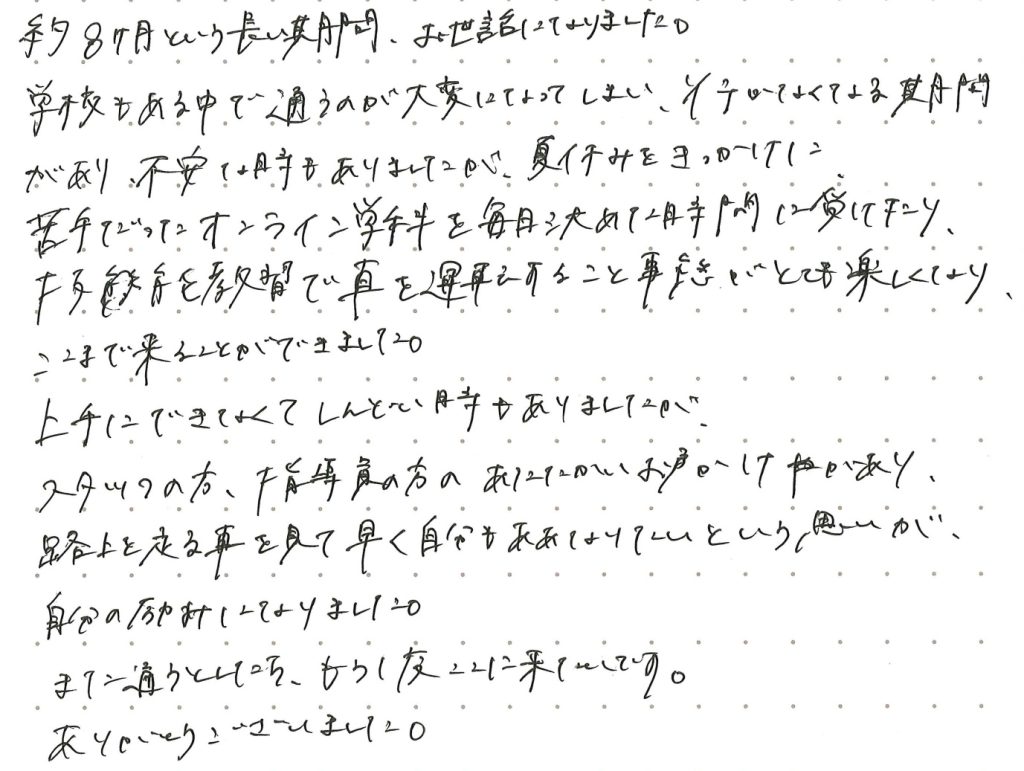 約8ヶ月という長い期間、お世話になりました。
学校もある中で通うのが大変になってしまい、行けなくなる期間
があり、不安な時もありましたが、夏休みをきっかけに
苦手だったオンライン学科を毎日決めて時間に貸してたり、
技能教習で車を運転すること事態がとても楽しくなり、
ここまで来ることができました。
上手にできなくてしんどい時もありましたが、
スタッフの方、指導員の方のあたたかいお声かけがあり、
路上を走る車を見て早く自分もああなりたいという思いが、
自分の励みになりました。
また通うとしたら、もう1度ここに来たいです。
ありがとうございました。